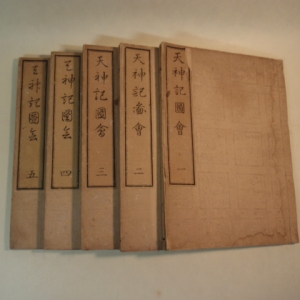 天神記圖會 一
天神記圖會 二
天神記圖會 三
天神記圖会 四
天神記圖会 五